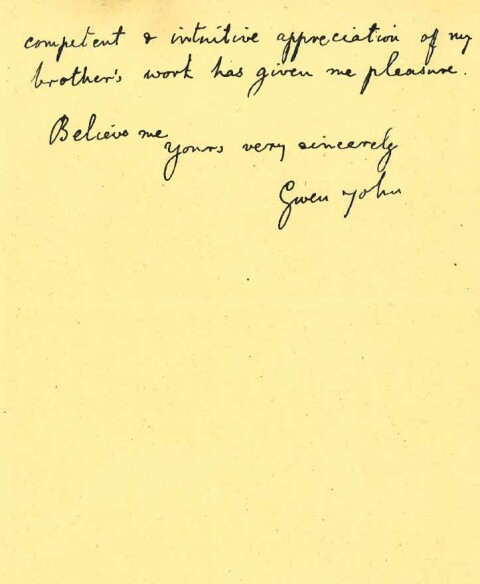 competent & intuitive appreciation of my
brother's work has given me pleasure.
Believe me
yours very sincerely
Gwen John